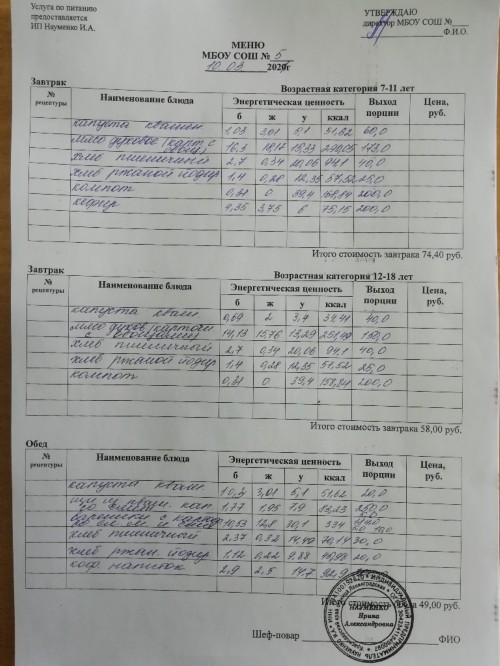 Услуга по питанию
предоставляется
ИП Науменко И.А.
УТВЕРЖДАЮ
директор МБОУ СОШ №____
Ф.И.О.
МЕНЮ
МБОУ СОШ № 5
10.03 2020г
Завтрак Возрастная категория 7-11 лет
№ рецептуры Наименование блюда Энергетическая ценность Выход порции Цена, руб.
б ж у ккал
капуста квашен 1,03 3,01 5,1 51,62 60,0
мясо духовое (карт с
хлеб пшеничный 2,7 0,34 20,06 94,1 40,0
хлеб ржаной йодир 1,4 0,28 12,35 51,52 25,0
компот 0,31 0 39,4 158,84 200,0
кефир 4,35 3,75 6 75,15 200,0
Итого стоимость завтрака 74,40 руб.
Завтрак Возрастная категория 12-18 лет
№ рецептуры Наименование блюда Энергетическая ценность Выход порции Цена, руб.
б ж у ккал
капуста кваш 0,69 2 3,4 34,41 40,0
мясо духов (картош
с овощами) 14,13 15,76 13,29
хлеб пшеничный 2,7 0,34 20,06 94,1 40,0
хлеб ржаной йодир 1,4 0,28 12,35 51,52 25,0
компот 0,31 0 39,4 158,84 200,0
Итого стоимость завтрака 58,00 руб.
Обед
№ рецептуры Наименование блюда Энергетическая ценность Выход порции Цена, руб.
б ж у ккал
капуста кваш 3,01 5,1 51,62 20,0
щи из кап 1,77 1,95 7,9
12,8 30,1 334
хлеб пшеничный 2,37 0,32 14,49 70,14 30,0
хлеб ржан. йодир 1,12 0,22 9,88 20,0
коф напиток 2,9 2,5 14,7
Итого стоимость обеда 49,00 руб.
НАУМЕНКО
Ирина
Александровна
Шеф-повар ФИО